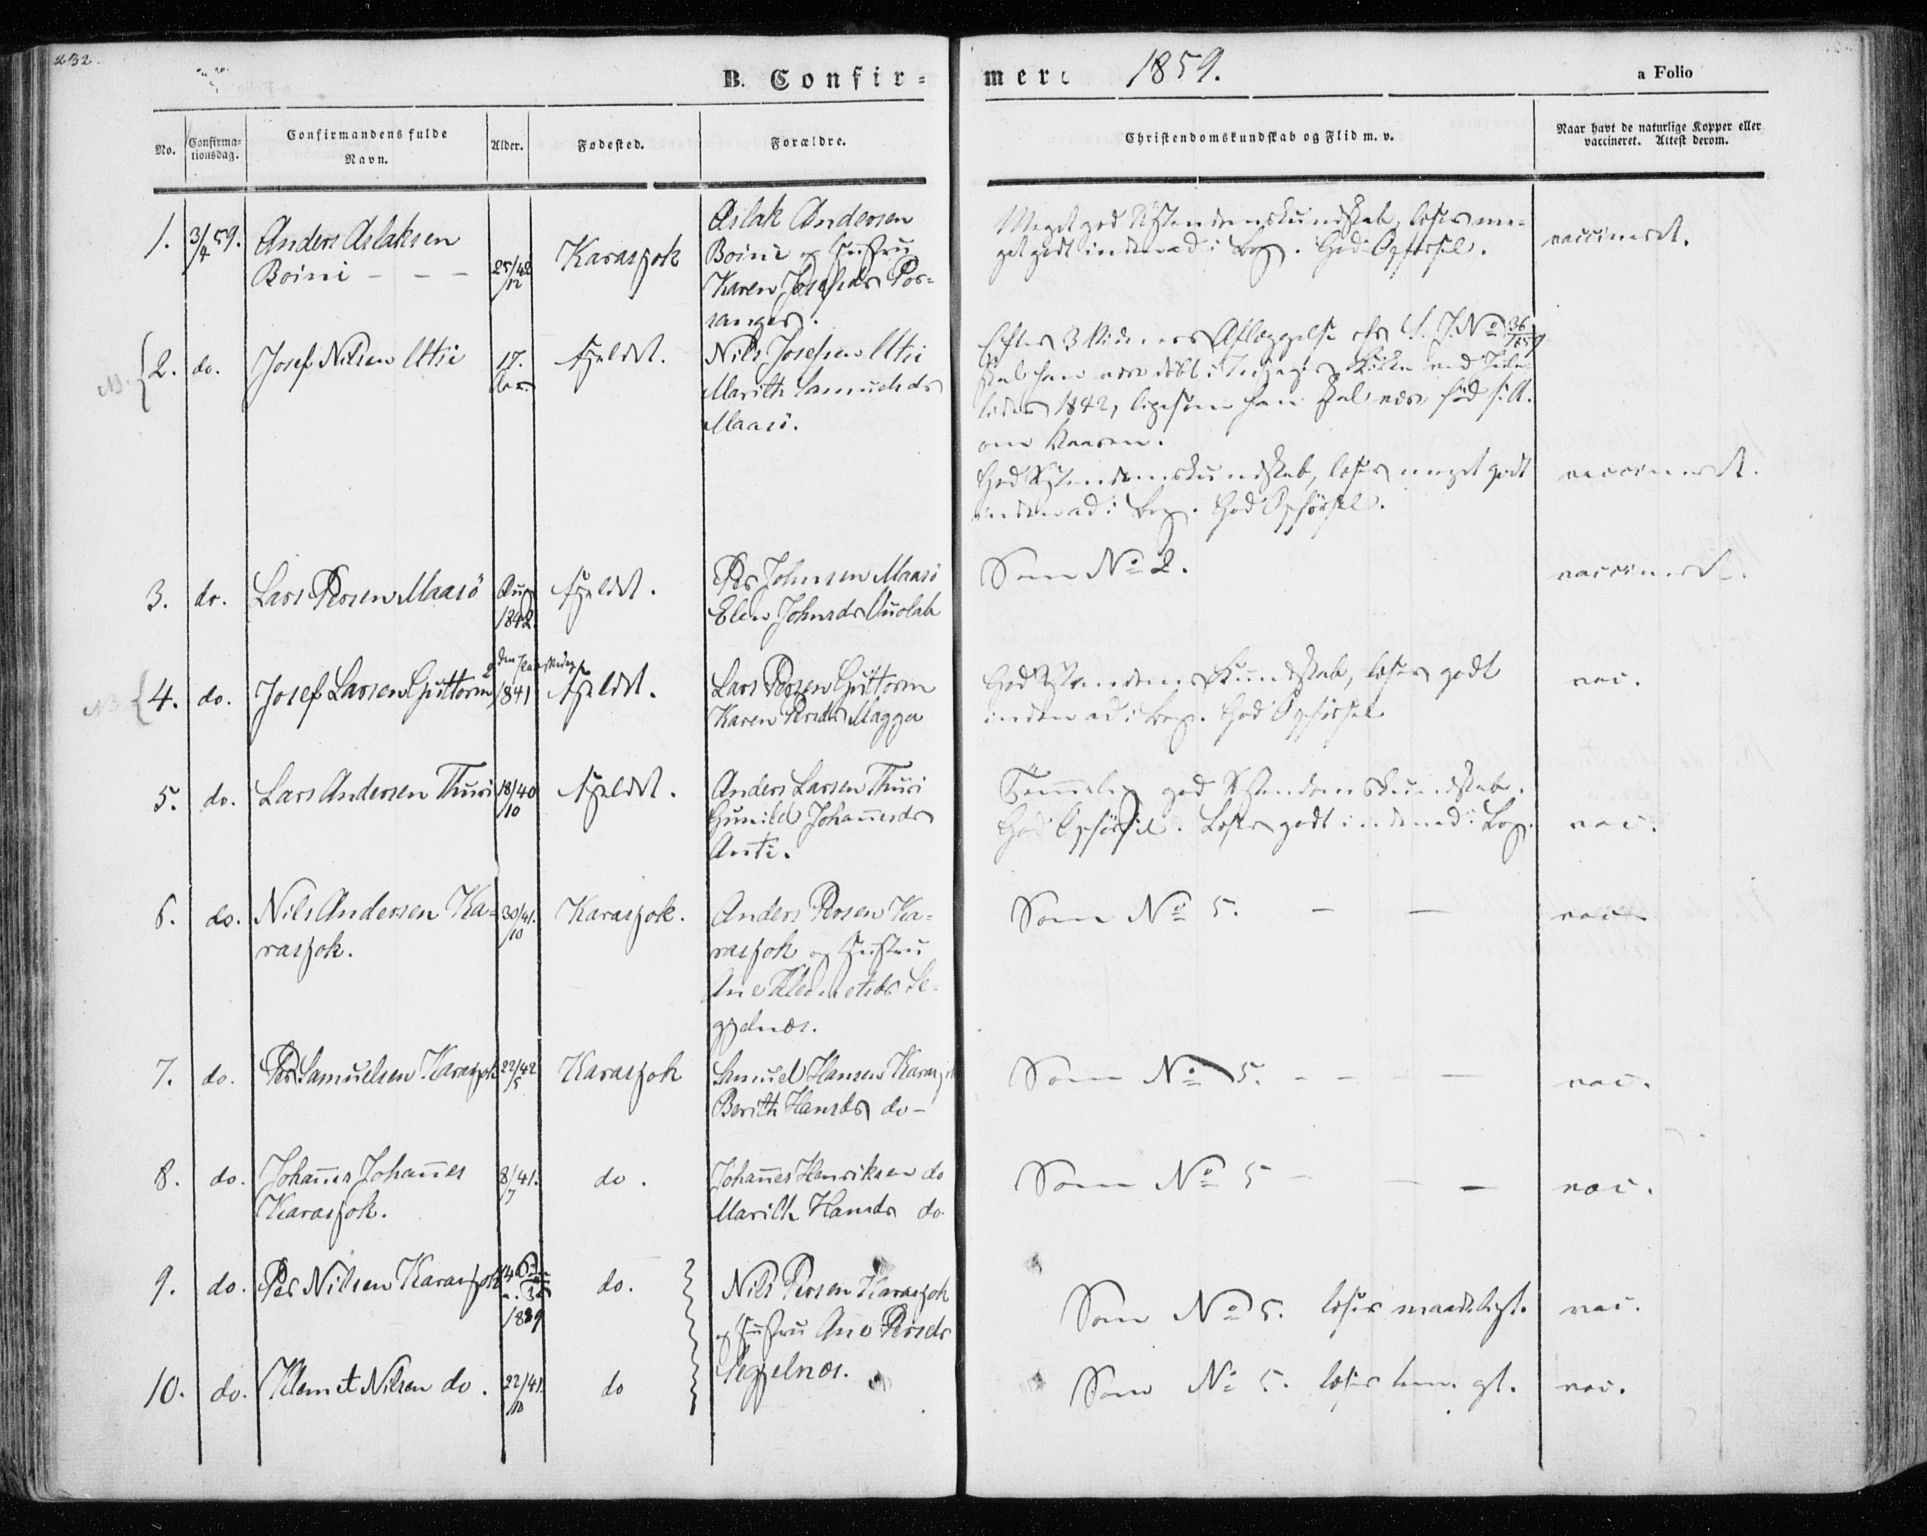 232.
B. Confir-
mere 1859.
a Folio
No.
Confirma-
tionsdag.
Confirmandens fulde
Navn.
Alder.
Fødested.
Forældre.
Christendomskundskab og Flid m. v.
Naar havt de naturlige Kopper eller
vaccineret. Attest derom.
1. 3/4 59. Anders Aslaksen
Boini - - -
25/42
/12
Karasjok
Aslak Andersen
Boini og Hustru
Karen Josefsdr Por-
sanger.
Meget god Kristendomskundskab, læser me-
get godt indenad i Bog. God Opførsel.
vaccineret.
NB. 2. do. Josef Nilsen Utsi
17.
Aar
Fjeldet.
Nils Josefsen Utsi
Marith Samuelsdr
Maasö.
Efter 3 Vidners Aflæggelse
skal han være døbt i Kirke ved Jule-
tider 1842, ligesom han skal være fød
om Vaaren.
God Kristendomskundskab, læser meget godt
indenad i Bog. God Opførsel.
vaccineret.
3. do. Lars Persen Maasö
Aug
1842
Fjeldet.
Per Johnsen Maasö
Elen Johnsdr Auolak
Som No 2.
vaccineret.
NB 4. do. Josef Larsen Guttorm
1841
Fjeldet.
Lars Persen Guttorm
Karen Persdr Magga
God Kristendomskundskab, læser godt
indenad i Bog. God Opførsel
vac.
5. do. Lars Andersen Thuri
18/40
/10
Fjeldet.
Anders Larsen Thuri
Gunild Johannesdr
Anti.
Temmelig god Kristendomskundskab.
God Opførsel. Læser godt indenad i Bog.
vac.
6. do. Nils Andersen Ka-
rasjok.
30/41.
/10
Karasjok.
Anders Persen Ka-
rasjok og Hustru
Ane Klemetsdr Se-
gelnæs.
Som No 5. - -
vac.
7. do. Per Samuelsen Karasjok
22/42
/5
Karasjok
Samuel Hansen Karasjok
Berith Hansdr do-
Som No 5. - - - -
vac.
8. do. Johannes Johannes
Karasjok.
8/41.
/7
do.
Johannes Henriksen do
Marith Hansdr do.
Som No 5 - - -
vac.
9. do. Per Nilsen Karasjok
1839
do.
Nils Persen Karasjok
og Hustru Ane Persdr
Segelnæs.
Som No 5. læser maadeligt.
vac.
10. do. Klemet Nilsen do.
22/41.
/10
do
Som No 5. læser tem. gt.
vac.